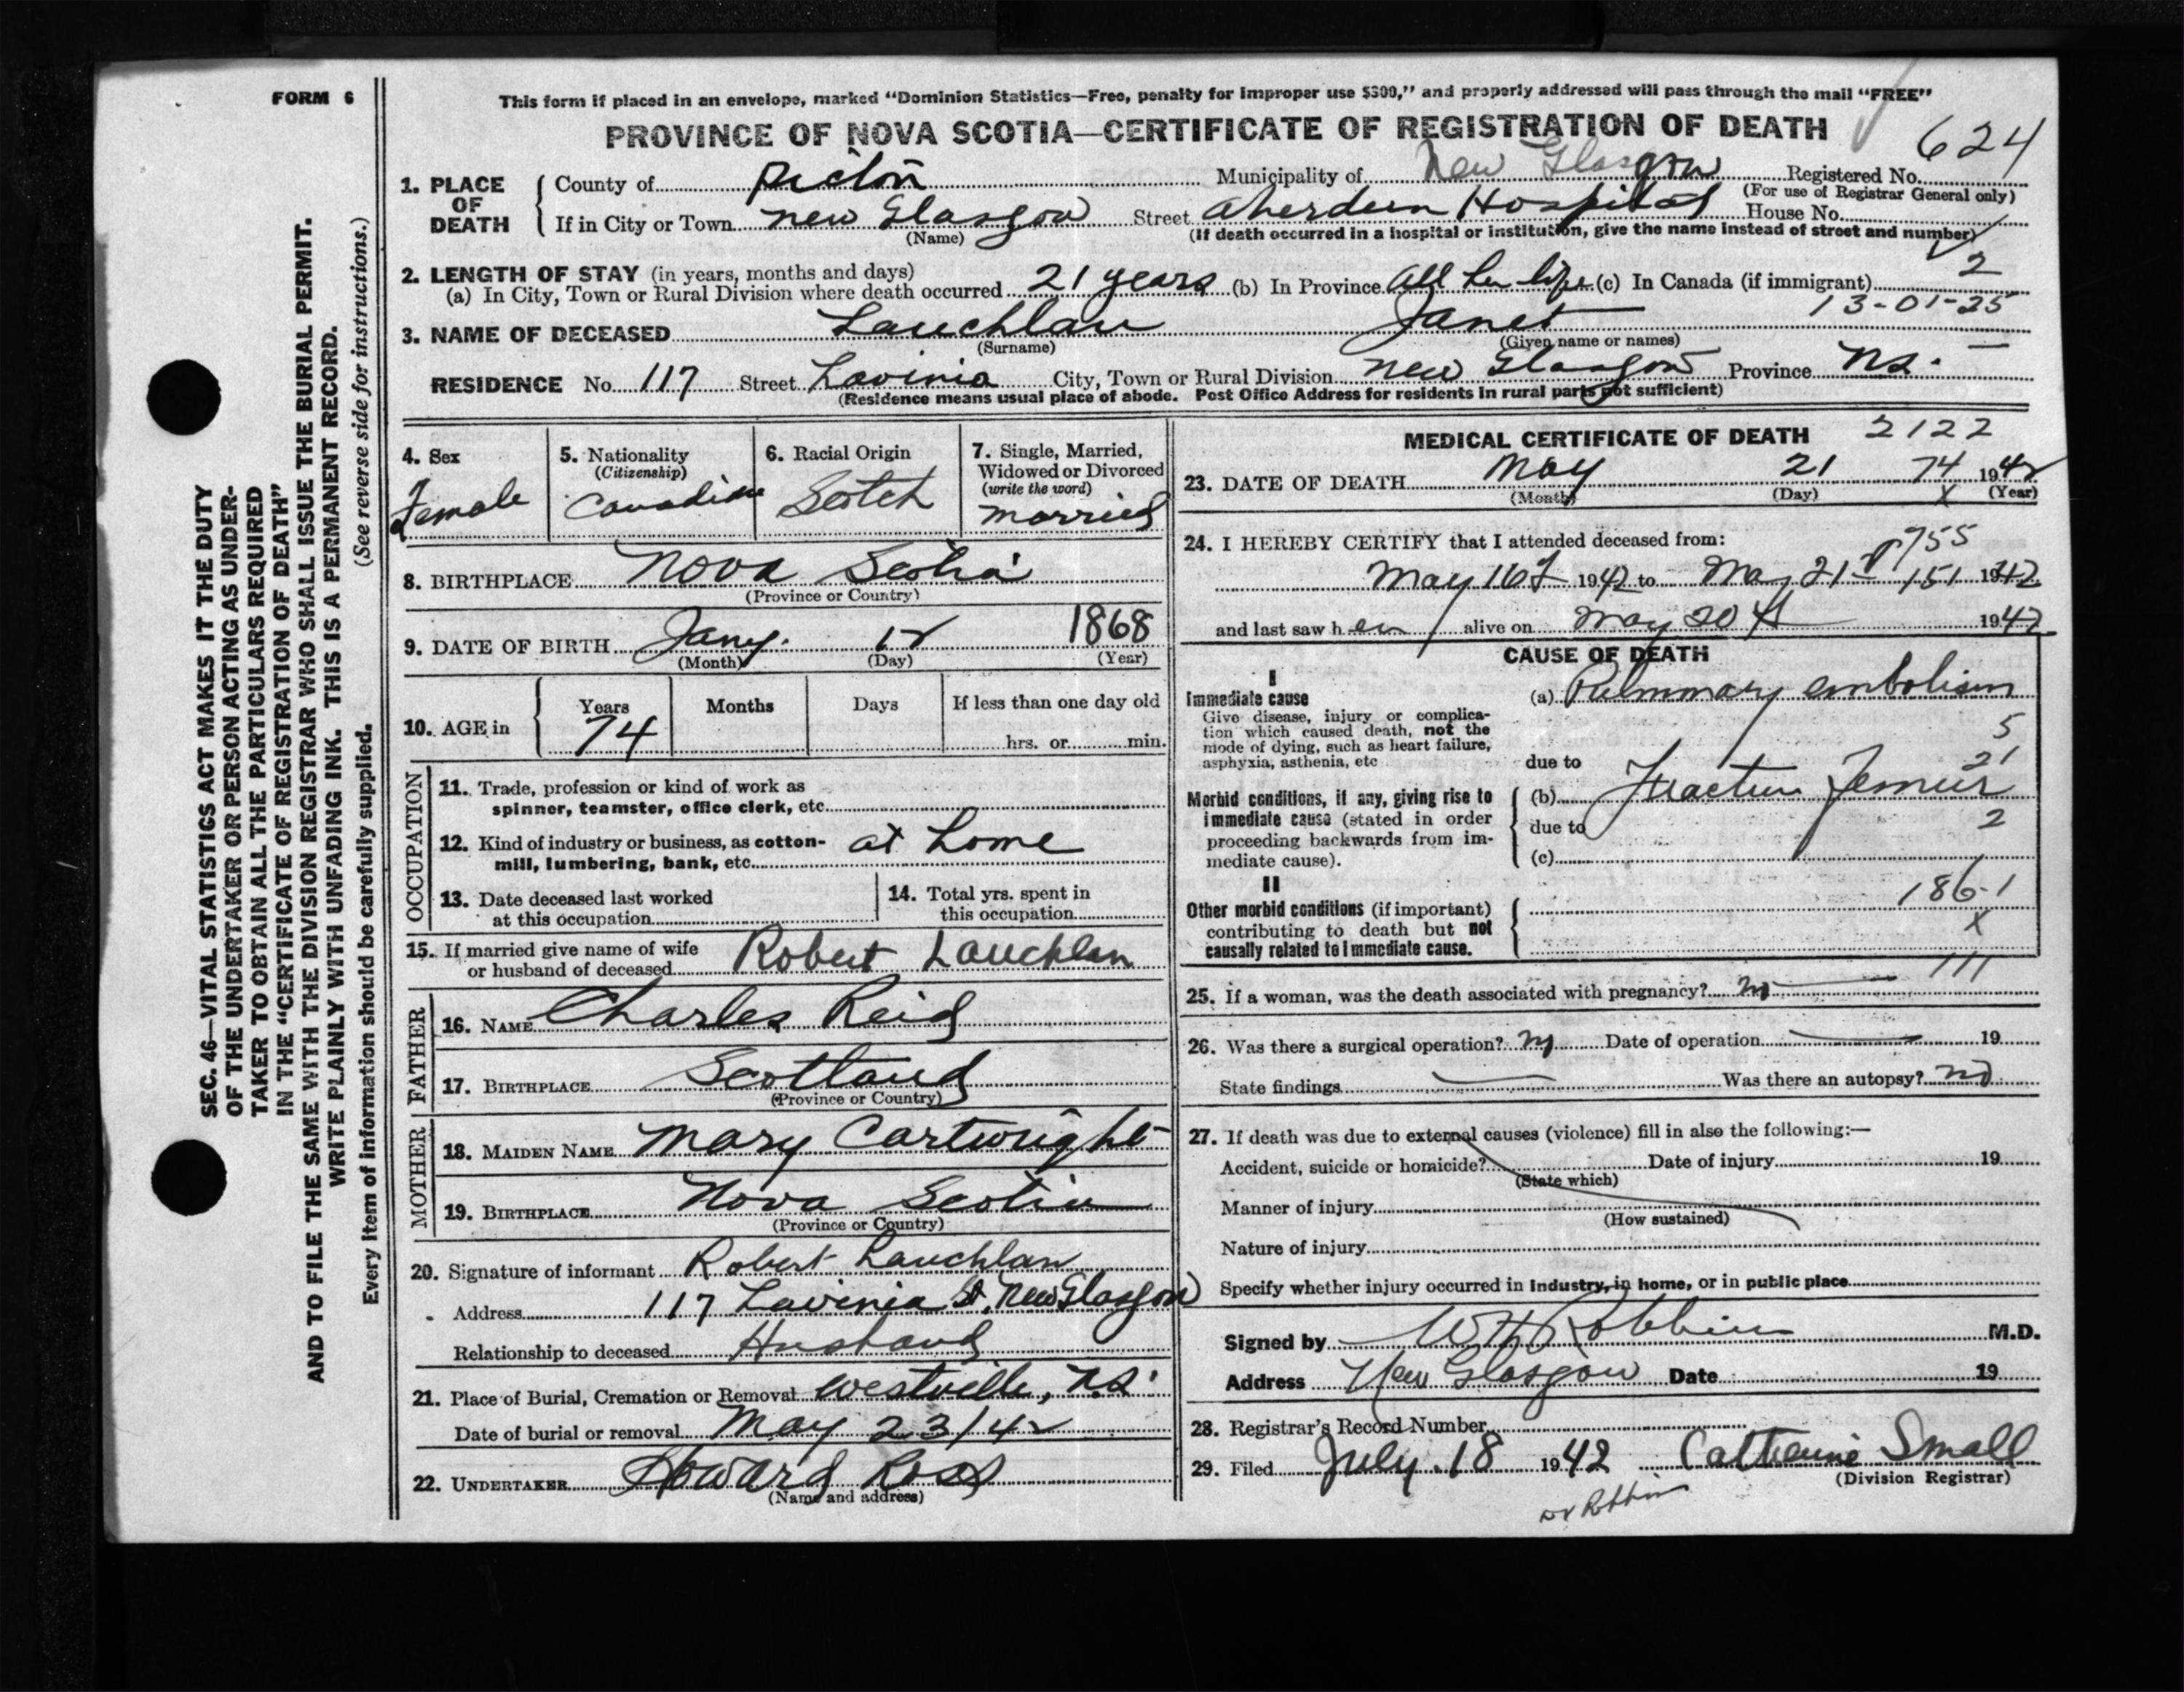 FORM 6
This form if placed in an envelope, marked "Dominion Statistics—Free, penalty for improper use $300," and properly addressed will pass through the mail "FREE"
PROVINCE OF NOVA SCOTIA—CERTIFICATE OF REGISTRATION OF DEATH
624
1. PLACE OF DEATH
County of Pictou Municipality of New Glasgow Registered No.
(For use of Registrar General only)
If in City or Town New Glasgow Street Aberdeen Hospital House No.
(Name) (If death occurred in a hospital or institution, give the name instead of street and number)
2. LENGTH OF STAY (in years, months and days) 2
(a) In City, Town or Rural Division where death occurred 21 years (b) In Province All her life (c) In Canada (if immigrant)
13-01-25
3. NAME OF DECEASED Lauchlan Janet
(Surname) (Given name or names)
RESIDENCE No. 117 Street Lavinia City, Town or Rural Division New Glasgow Province N.S.
(Residence means usual place of abode. Post Office Address for residents in rural parts not sufficient)
4. Sex
Female
5. Nationality
(Citizenship)
Canadian
6. Racial Origin
Scotch
7. Single, Married,
Widowed or Divorced
(write the word)
Married
8. BIRTHPLACE Nova Scotia
(Province or Country)
9. DATE OF BIRTH Jany. 12 1868
(Month) (Day) (Year)
10. AGE in
Years Months Days If less than one day old
74 hrs. or min.
OCCUPATION
11. Trade, profession or kind of work as
spinner, teamster, office clerk, etc.
12. Kind of industry or business, as cotton-
mill, lumbering, bank, etc. at home
13. Date deceased last worked
at this occupation
14. Total yrs. spent in
this occupation
15. If married give name of wife
or husband of deceased Robert Lauchlan
FATHER
16. NAME Charles Reid
17. BIRTHPLACE Scotland
(Province or Country)
MOTHER
18. MAIDEN NAME Mary Cartwright
19. BIRTHPLACE Nova Scotia
(Province or Country)
20. Signature of informant Robert Lauchlan
Address 117 Lavinia St. New Glasgow
Relationship to deceased Husband
21. Place of Burial, Cremation or Removal Westville, N.S.
Date of burial or removal May 23/42
22. UNDERTAKER Howard Ross
(Name and address)
MEDICAL CERTIFICATE OF DEATH 2122
23. DATE OF DEATH May 21 74 1942
(Month) (Day) X (Year)
24. I HEREBY CERTIFY that I attended deceased from:
755
May 16 1942 to May 21 151 1942
and last saw her alive on May 20th 1942
CAUSE OF DEATH
I
Immediate cause
Give disease, injury or complica-
tion which caused death, not the
mode of dying, such as heart failure,
asphyxia, asthenia, etc
(a) Pulmonary embolism
5
due to 21
Morbid conditions, if any, giving rise to
immediate cause (stated in order
proceeding backwards from im-
mediate cause).
(b) Fracture Femur
due to 2
(c)
II
Other morbid conditions (if important)
contributing to death but not
causally related to immediate cause.
186-1
X
111
25. If a woman, was the death associated with pregnancy? no
26. Was there a surgical operation? no Date of operation 19
State findings Was there an autopsy? no
27. If death was due to external causes (violence) fill in also the following:—
Accident, suicide or homicide? Date of injury 19
(State which)
Manner of injury
(How sustained)
Nature of injury
Specify whether injury occurred in industry, in home, or in public place
Signed by W H Robbins M.D.
Address New Glasgow Date 19
28. Registrar's Record Number
29. Filed July 18 1942 Catherine Small
(Division Registrar)
Dr Robbins
SEC. 46—VITAL STATISTICS ACT MAKES IT THE DUTY
OF THE UNDERTAKER OR PERSON ACTING AS UNDER-
TAKER TO OBTAIN ALL THE PARTICULARS REQUIRED
IN THE "CERTIFICATE OF REGISTRATION OF DEATH"
AND TO FILE THE SAME WITH THE DIVISION REGISTRAR WHO SHALL ISSUE THE BURIAL PERMIT.
WRITE PLAINLY WITH UNFADING INK. THIS IS A PERMANENT RECORD.
Every item of information should be carefully supplied. (See reverse side for instructions.)